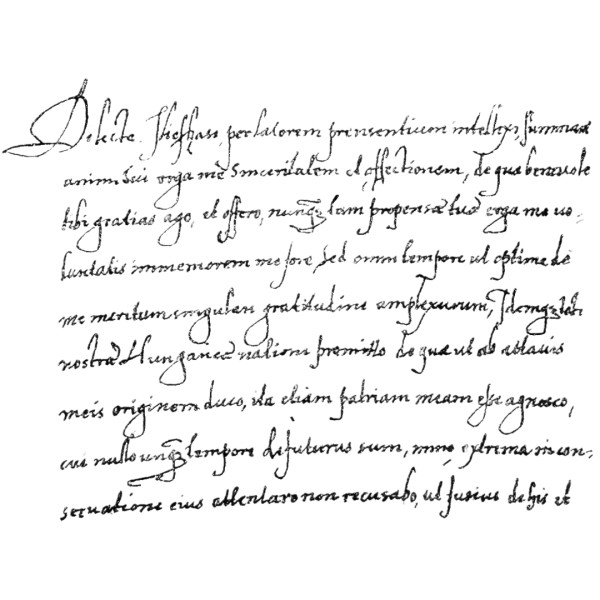 Delecte. Thesfrasi, per latorem prensentiuon intellexi, summam
animi sui erga me sinceritatem et affectionem, de qua benevole
tibi gratias ago, et offero, nunq₃ tam propensæ tuæ erga me vo-
luntatis immemorem me fore, sed omni tempore ut optime de
me meritum singulari gratitudine amplexurum, Idemq₃
nostræ Hungaricæ nationi promitto de qua ut ab attavis
meis originem duco, ita etiam patriam meam esse agnosco,
cui nullo unq₃ tempore defuturus sum, immo extrema in con-
servatione eius attentare non recusabo, ut fusius de his et